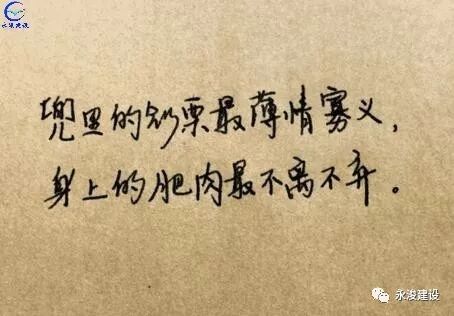 永浚建设
兜里的钞票最薄情寡义，
身上的肥肉最不离不弃。
永浚建设